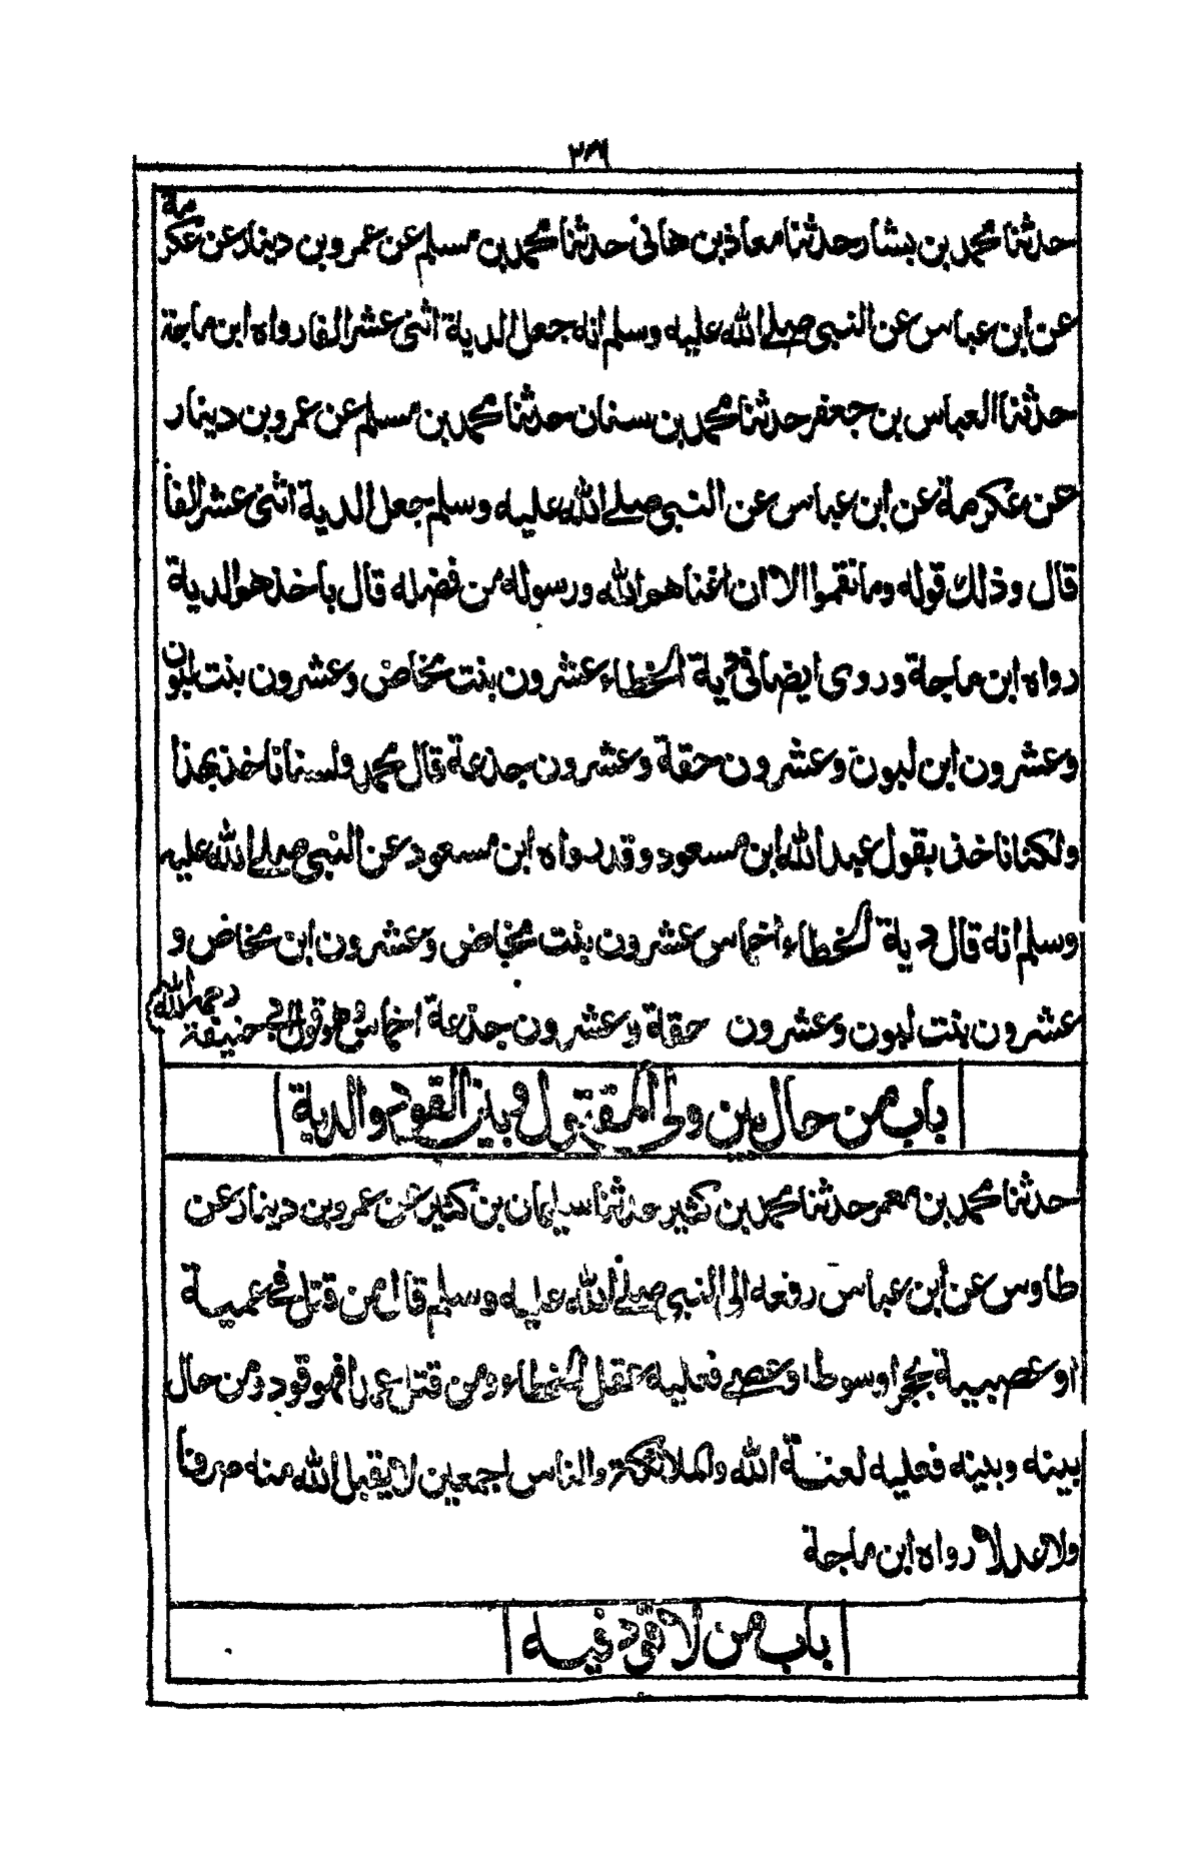 حدثنا محمد بن بشار حدثنا معاذ بن هانی حدثنا محمد بن مسلم عن عمرو بن دينار عن عكرمة
عن ابن عباس عن النبی صلے الله عليه وسلم انه جعل الدية اثنی عشر الفا رواه ابن ماجة
حدثنا العباس بن جعفر حدثنا محمد بن سنان حدثنا محمد بن مسلم عن عمرو بن دينار
عن عكرمة عن ابن عباس عن النبی صلے الله عليه وسلم جعل الدية اثنی عشر الفا
قال وذلك قوله وما نقموا الا ان اغناهم الله ورسوله من فضله قال باخذهم الدية
رواه ابن ماجة وروی ايضا فی دية الخطاء عشرون بنت مخاض وعشرون بنت لبون
وعشرون ابن لبون وعشرون حقة وعشرون جذعة قال محمد ولسنا ناخذ بهذا
ولكنا ناخذ بقول عبد الله ابن مسعود وقد رواه ابن مسعود عن النبی صلے الله عليه
وسلم انه قال دية الخطاء اخماس عشرون بنت مخاض وعشرون ابن مخاض و
عشرون بنت لبون وعشرون حقة وعشرون جذعة اخماس وهو قول ابی حنيفة رحمه الله
باب من حال بين ولی المقتول وبين القود والدية
حدثنا محمد بن معمر حدثنا محمد بن كثير حدثنا سليمان بن كثير عن عمرو بن دينار عن
طاوس عن ابن عباس رفعه الی النبی صلے الله عليه وسلم قال من قتل فی عمية
او عصبية بحجر او سوط او عصے فعليه عقل الخطاء ومن قتل عمدا فهو قود ومن حال
بينه وبينه فعليه لعنة الله والملائكة والناس اجمعين لا يقبل الله منه صرفا
ولا عدلا رواه ابن ماجة
باب من لا قود فيه